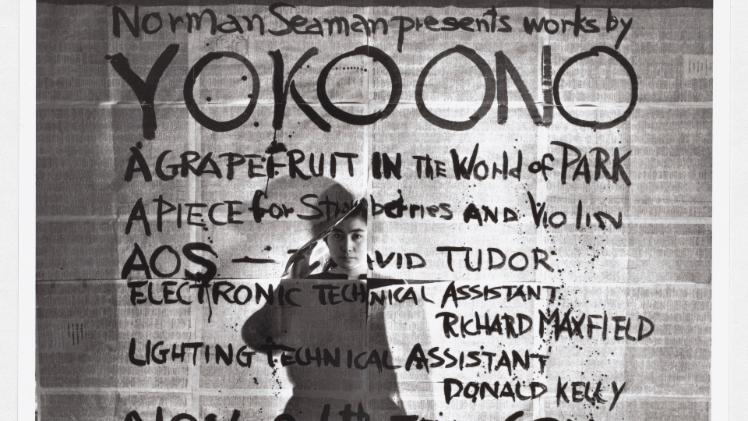 Norman Seaman presents works by
YOKO ONO
A GRAPEFRUIT IN THE World of PARK
A PIECE for Strawberries AND Violin
AOS — DAVID TUDOR
ELECTRONIC TECHNICAL ASSISTANT
RICHARD MAXFIELD
LIGHTING TECHNICAL ASSISTANT
DONALD KELLY